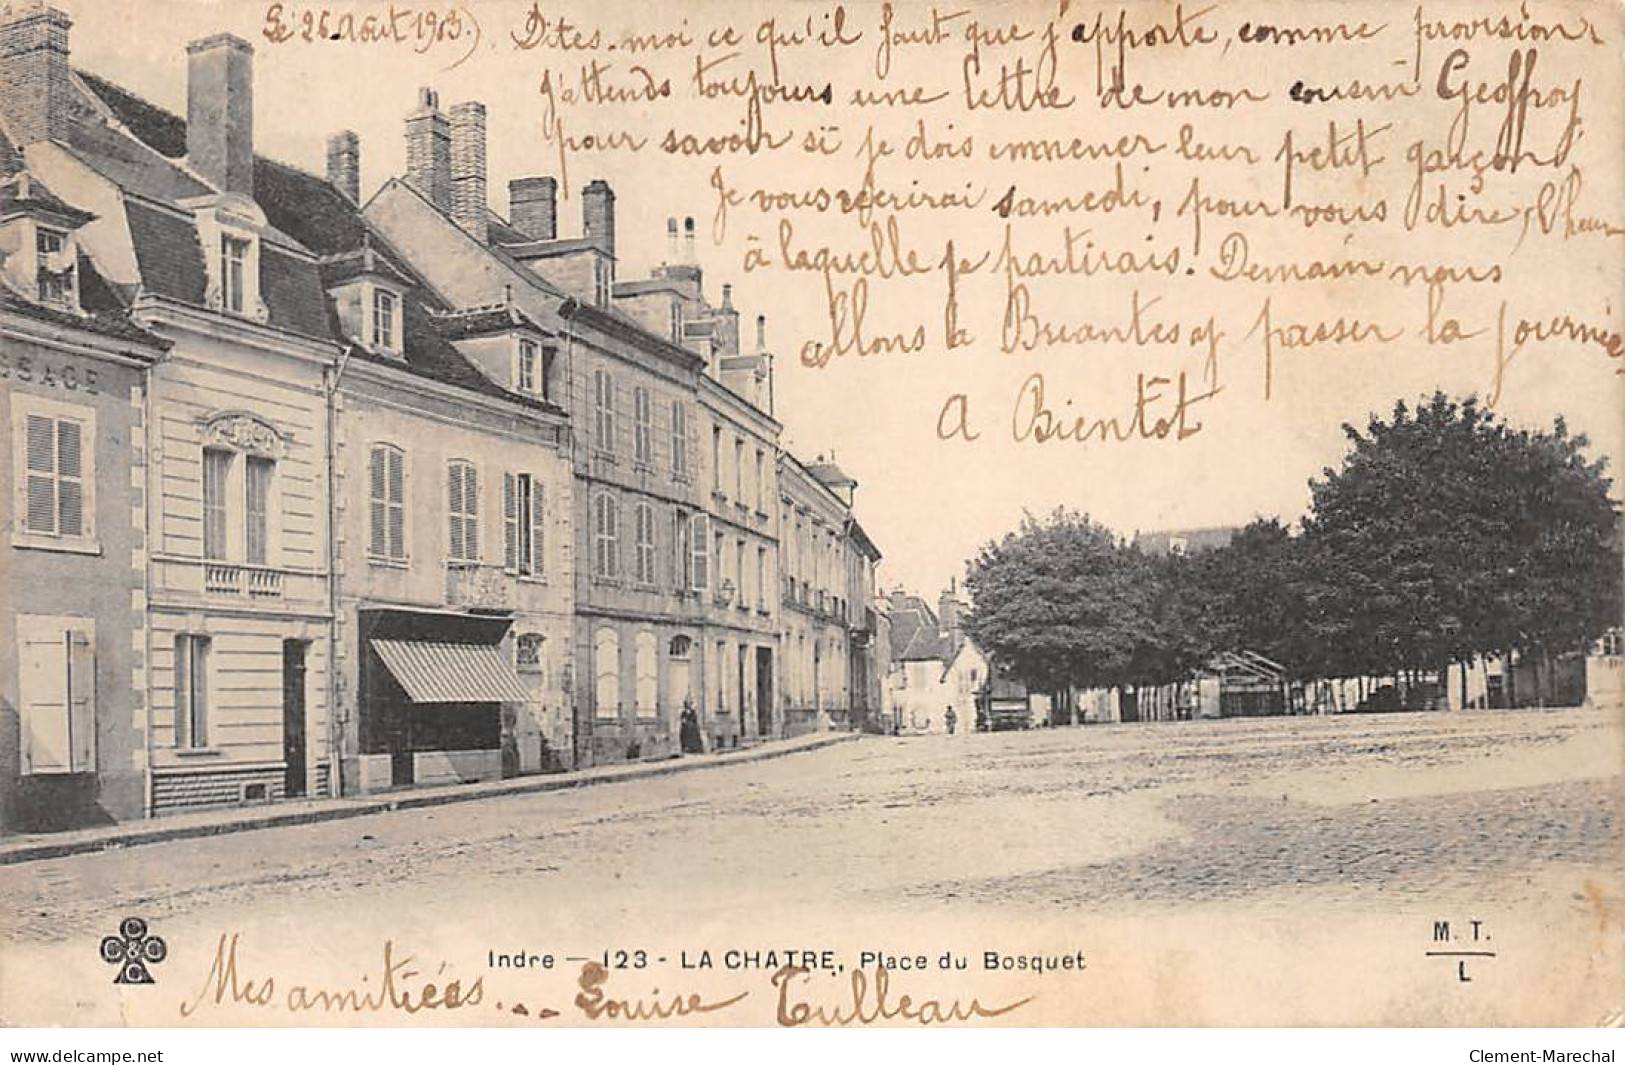 Le 26 Août 1903.) Dites-moi ce qu'il faut que j'apporte, comme provision.
j'attends toujours une lettre de mon cousin Geoffroy
pour savoir si je dois emmener leur petit garçon,
Je vous écrirai samedi, pour vous dire, l'heure
à laquelle je partirais. Demain nous
allons à Briantes y passer la journée
A Bientôt
SSAGE
C C & C C
Indre — 123 - LA CHATRE, Place du Bosquet
M. T.
L
Mes amitiées... Louise Tulleau
www.delcampe.net
Clement-Marechal